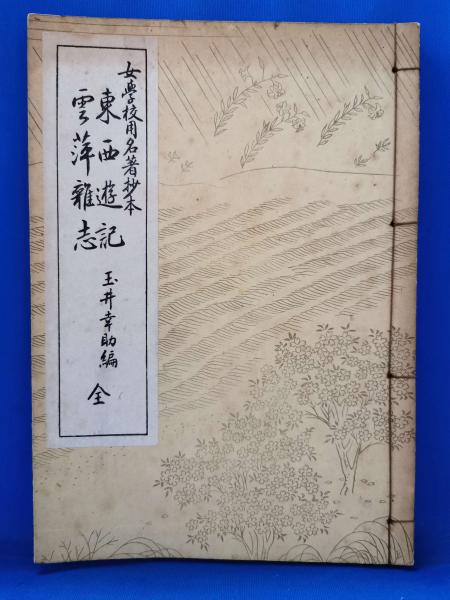 女學校用名著抄本
東西遊記
雲萍雜志
玉井幸助編
全